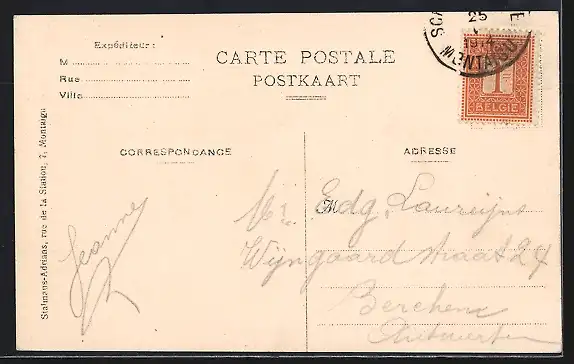 Expéditeur :
M
Rue
Ville
CARTE POSTALE
POSTKAART
25
MONTAIGU
1
BELGIE
CORRESPONDANCE
ADRESSE
Stalmans-Adrians, rue de la Station, 7, Montaigu
Jeanne
Mr. Edg. Laureijns
Wijngaardstraat 24
Berchem
Antwerpen